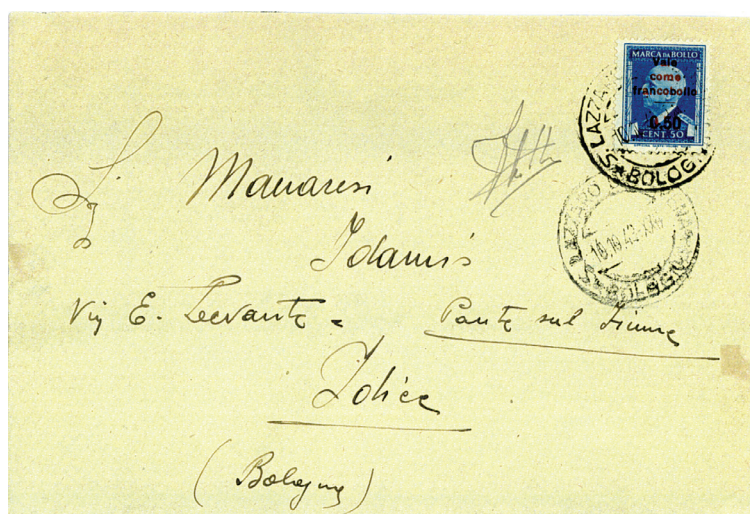 MARCA DA BOLLO
Vale
come
francobollo
0.50
CENT 50
LAZZARO
S * BOLOGN
LAZZARO
S * BOLOGN
Sig Manaresi
Idamis
Via E. Levante = Ponte sul fiume
Idice
(Bologna)